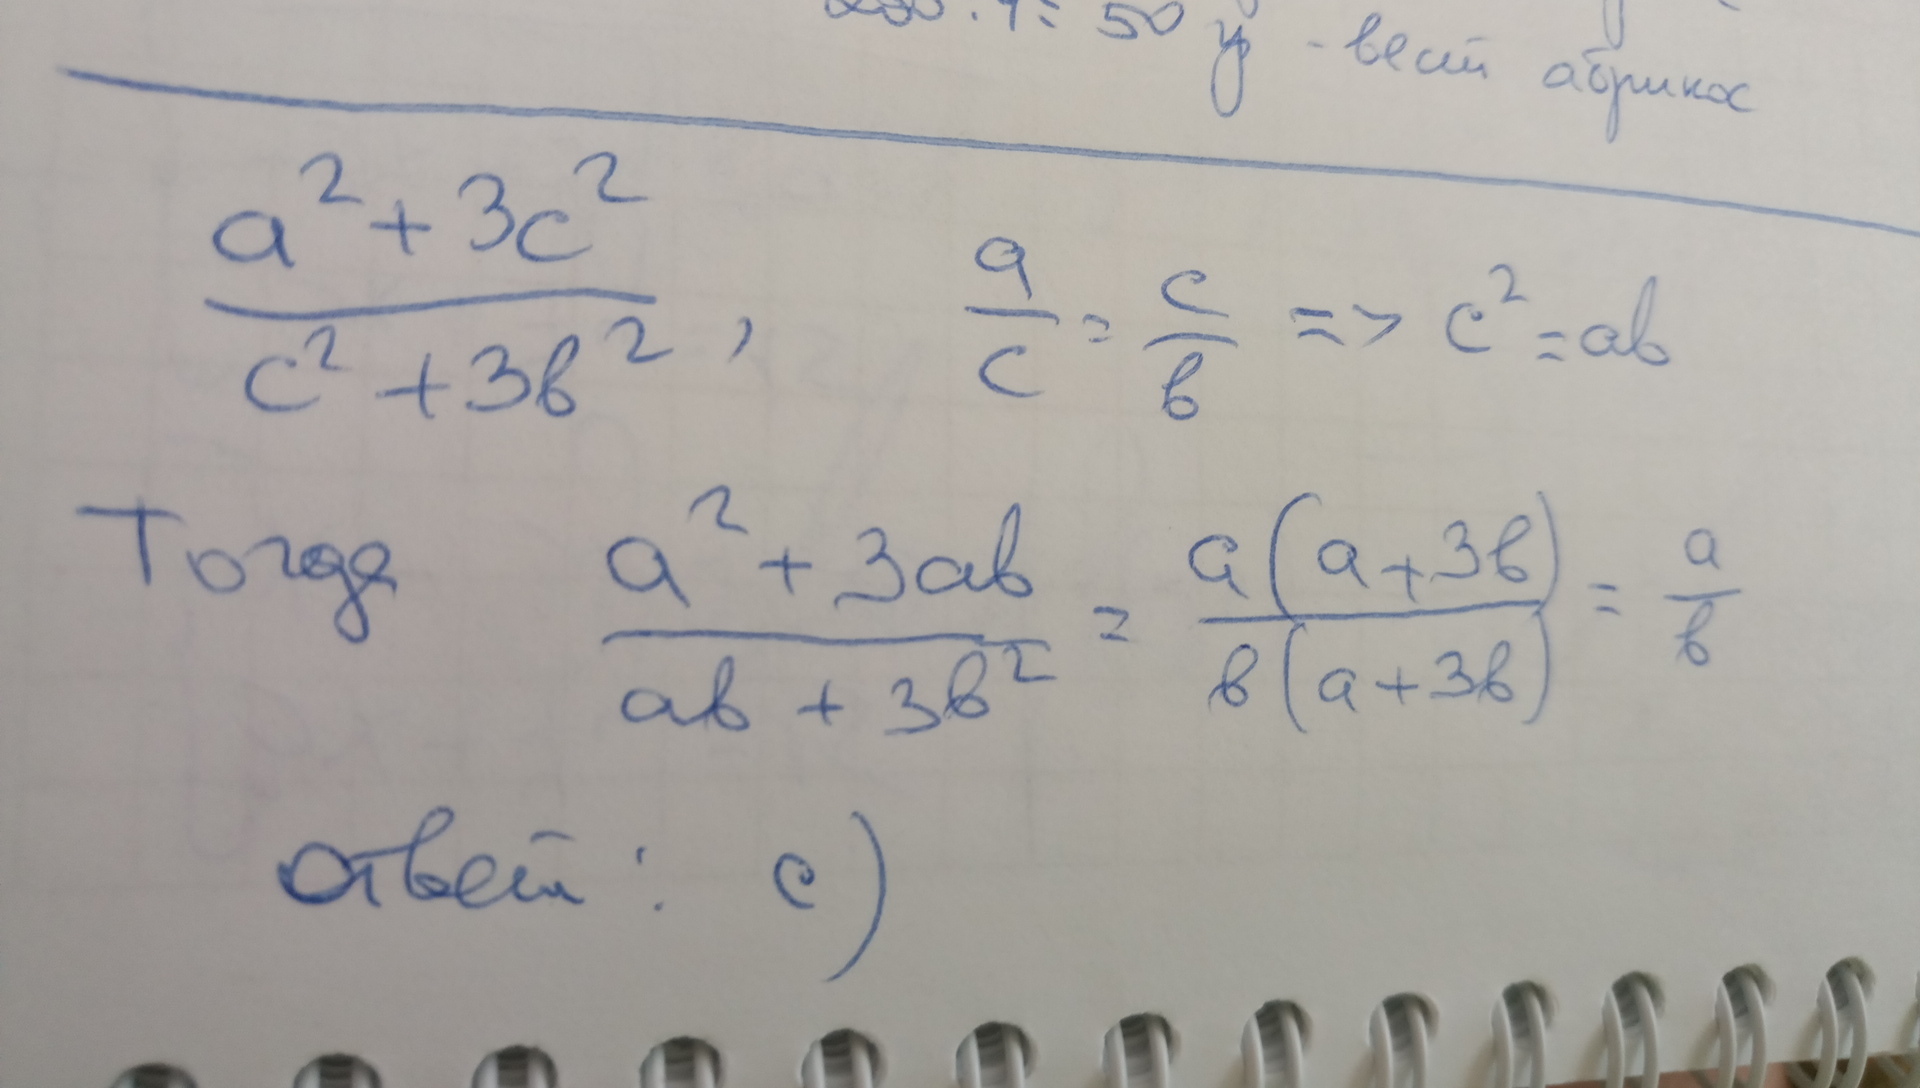 50 г - весит абрикос
a² + 3c² / c² + 3b² , a/c = c/b => c² = ab
Тогда a² + 3ab / ab + 3b² = a(a + 3b) / b(a + 3b) = a/b
Ответ: c)